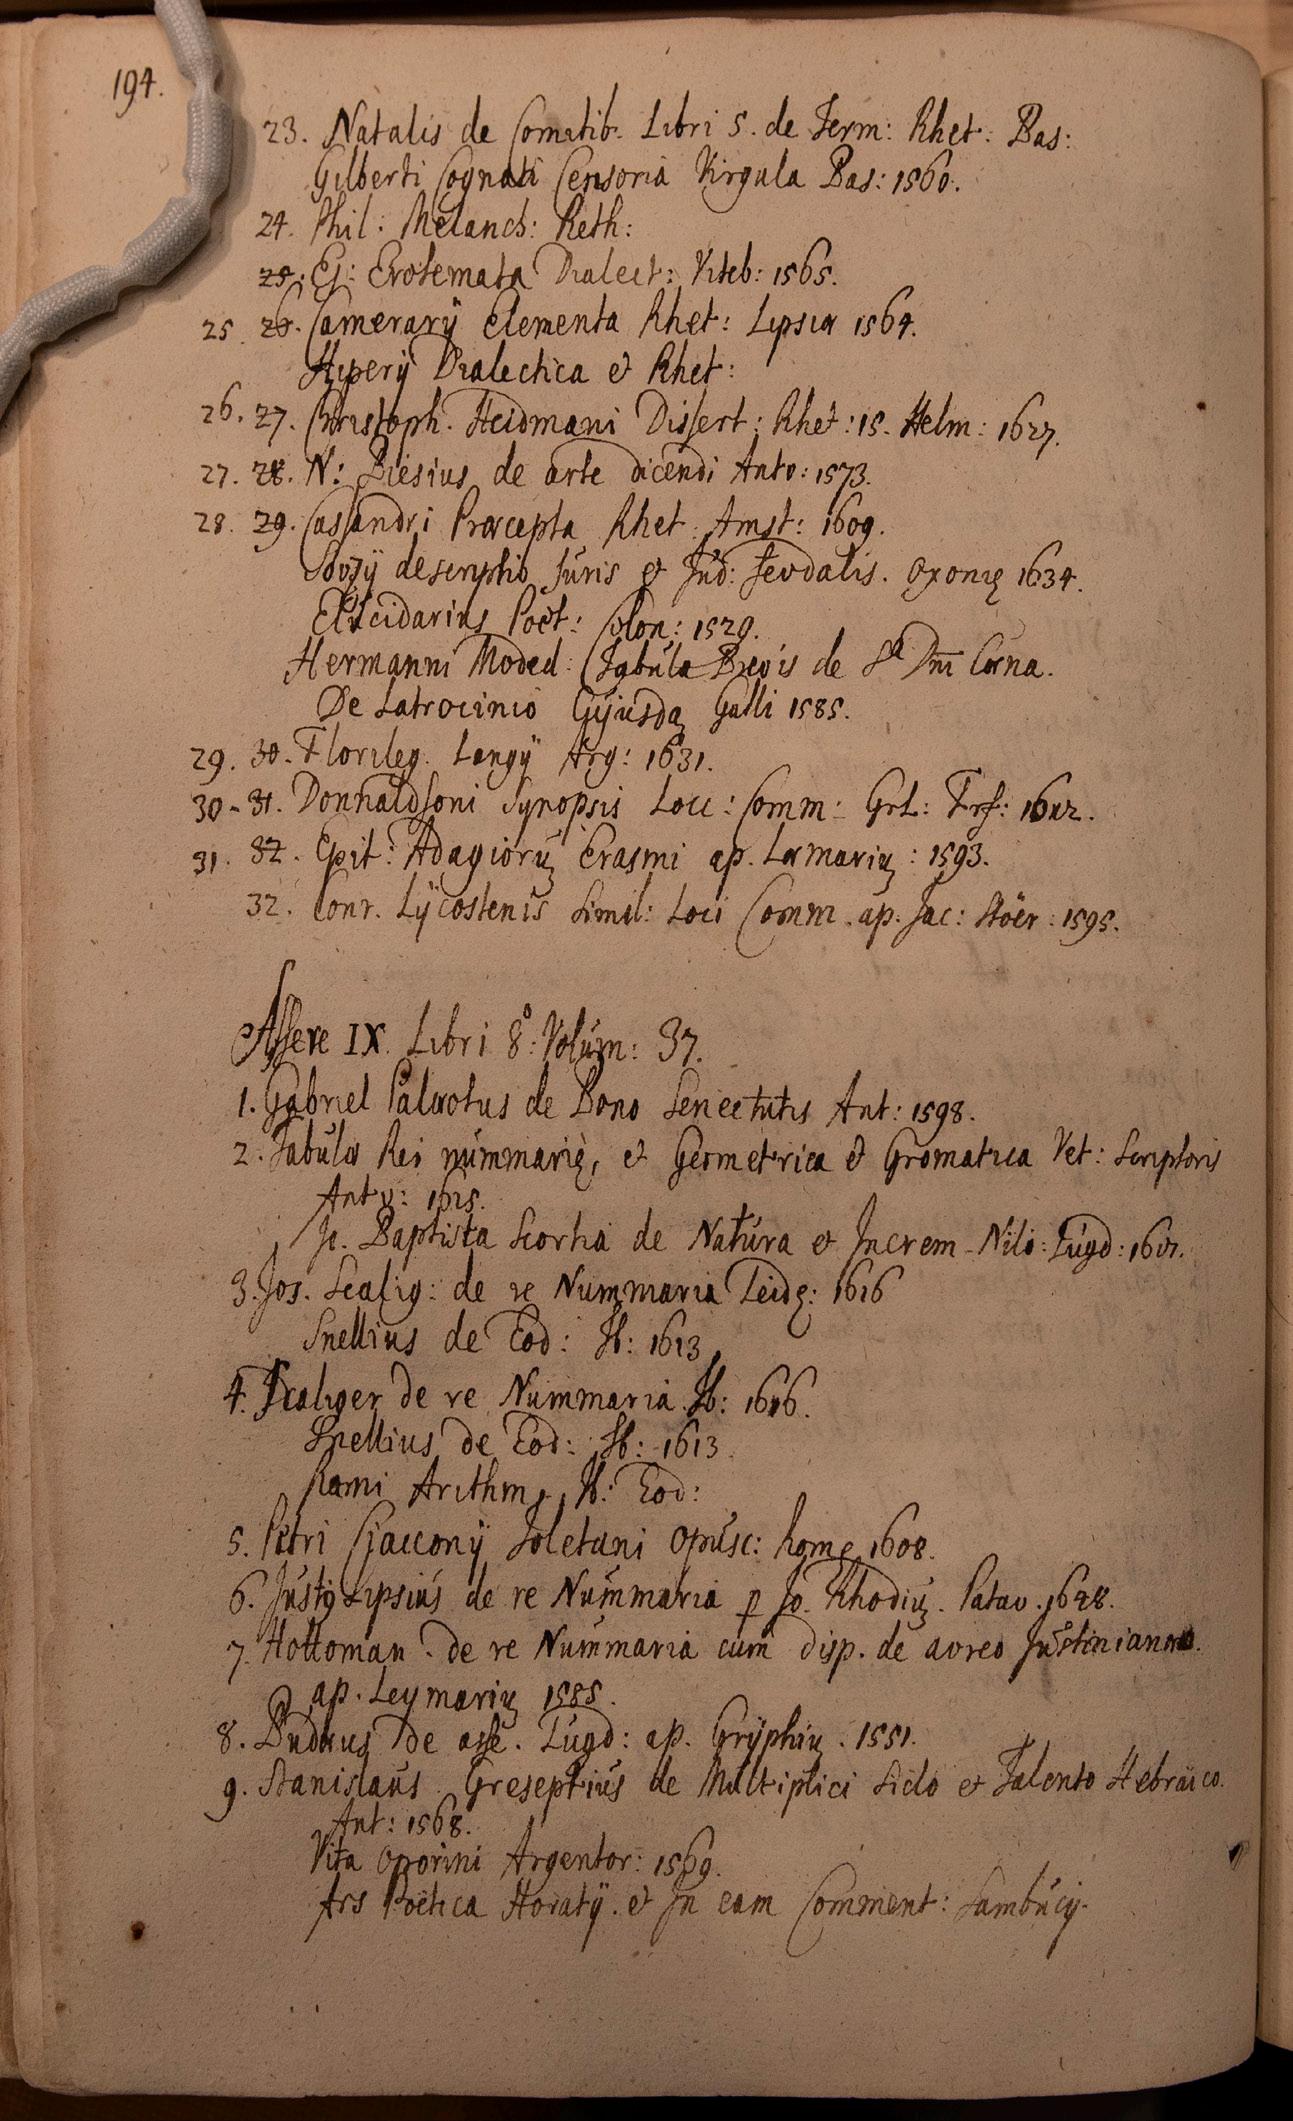 194.
23. Natalis de Comitib. Libri 5. de Term: Rhet: Bas:
Gilberti Cognati Censoria Virgula Bas: 1560.
24. Phil: Melanch: Reth:
25. Ej: Erotemata Dialect: Viteb: 1565.
25. 26. Camerarÿ Elementa Rhet: Lipsiæ 1564.
Hiperÿ Dialectica et Rhet:
26. 27. Christoph. Heidmani Dissert: Rhet: 15. Helm: 1627.
27. 28. N: Biesius de arte dicendi Antv: 1573.
28. 29. Cassandri Præcepta Rhet. Amst: 1609.
descriptio Juris et Jud: feudalis. Oxonię 1634.
Elucidarius Poët: Colon: 1529.
Hermanni Moded: Tabula Brevis de Cœna.
De Latrocinio Cÿiusdā Galli 1585.
29. 30. Florileg. Langÿ Arg: 1631.
30. 31. Donnaldsoni Synopsis Locc: Comm: GrL: Frf: 1612.
31. 32. Epit: Adagiorū Erasmi ap. Læmariū: 1593.
32. Conr. Lÿcostenis Simil: Loci Comm. ap. Jac: Stöer: 1595.
Assere IX. Libri 8°: Volum: 37.
1. Gabriel Palæotus de Bono Senectutis Ant: 1598.
2. Tabulæ Rei nummarię, et Geometrica et Gromatica Vet: Scriptoris
Antv: 1615.
Jo. Baptista Scortia de Natura et Increm. Nili: Lugd: 1617.
3. Jos. Scalig: de re Nummaria Leidę: 1616
Snellius de Eod: Ib: 1613
4. Scaliger de re Nummaria. Ib: 1616.
Snellius de Eod: Ib: 1613.
Rami Arithm. Ib: Eod:
5. Petri Cjacconÿ Toletani Opusc: Romę 1608.
6. Justꝯ Lipsius de re Nummaria p Jo. Rhodiū. Patav. 1648.
7. Hottoman. de re Nummaria cum disp. de aureo Justiniano.
ap. Leymariū 1585.
8. Budæus de asse. Lugd: ap. Grÿphiū. 1551.
9. Stanislaus Greseptius de Multiplici Siclo et Talento Hebraïco.
Ant: 1568.
Vita Oporini Argentor: 1569.
Ars Poëtica Horatÿ. et In eam Comment: Sambucÿ.